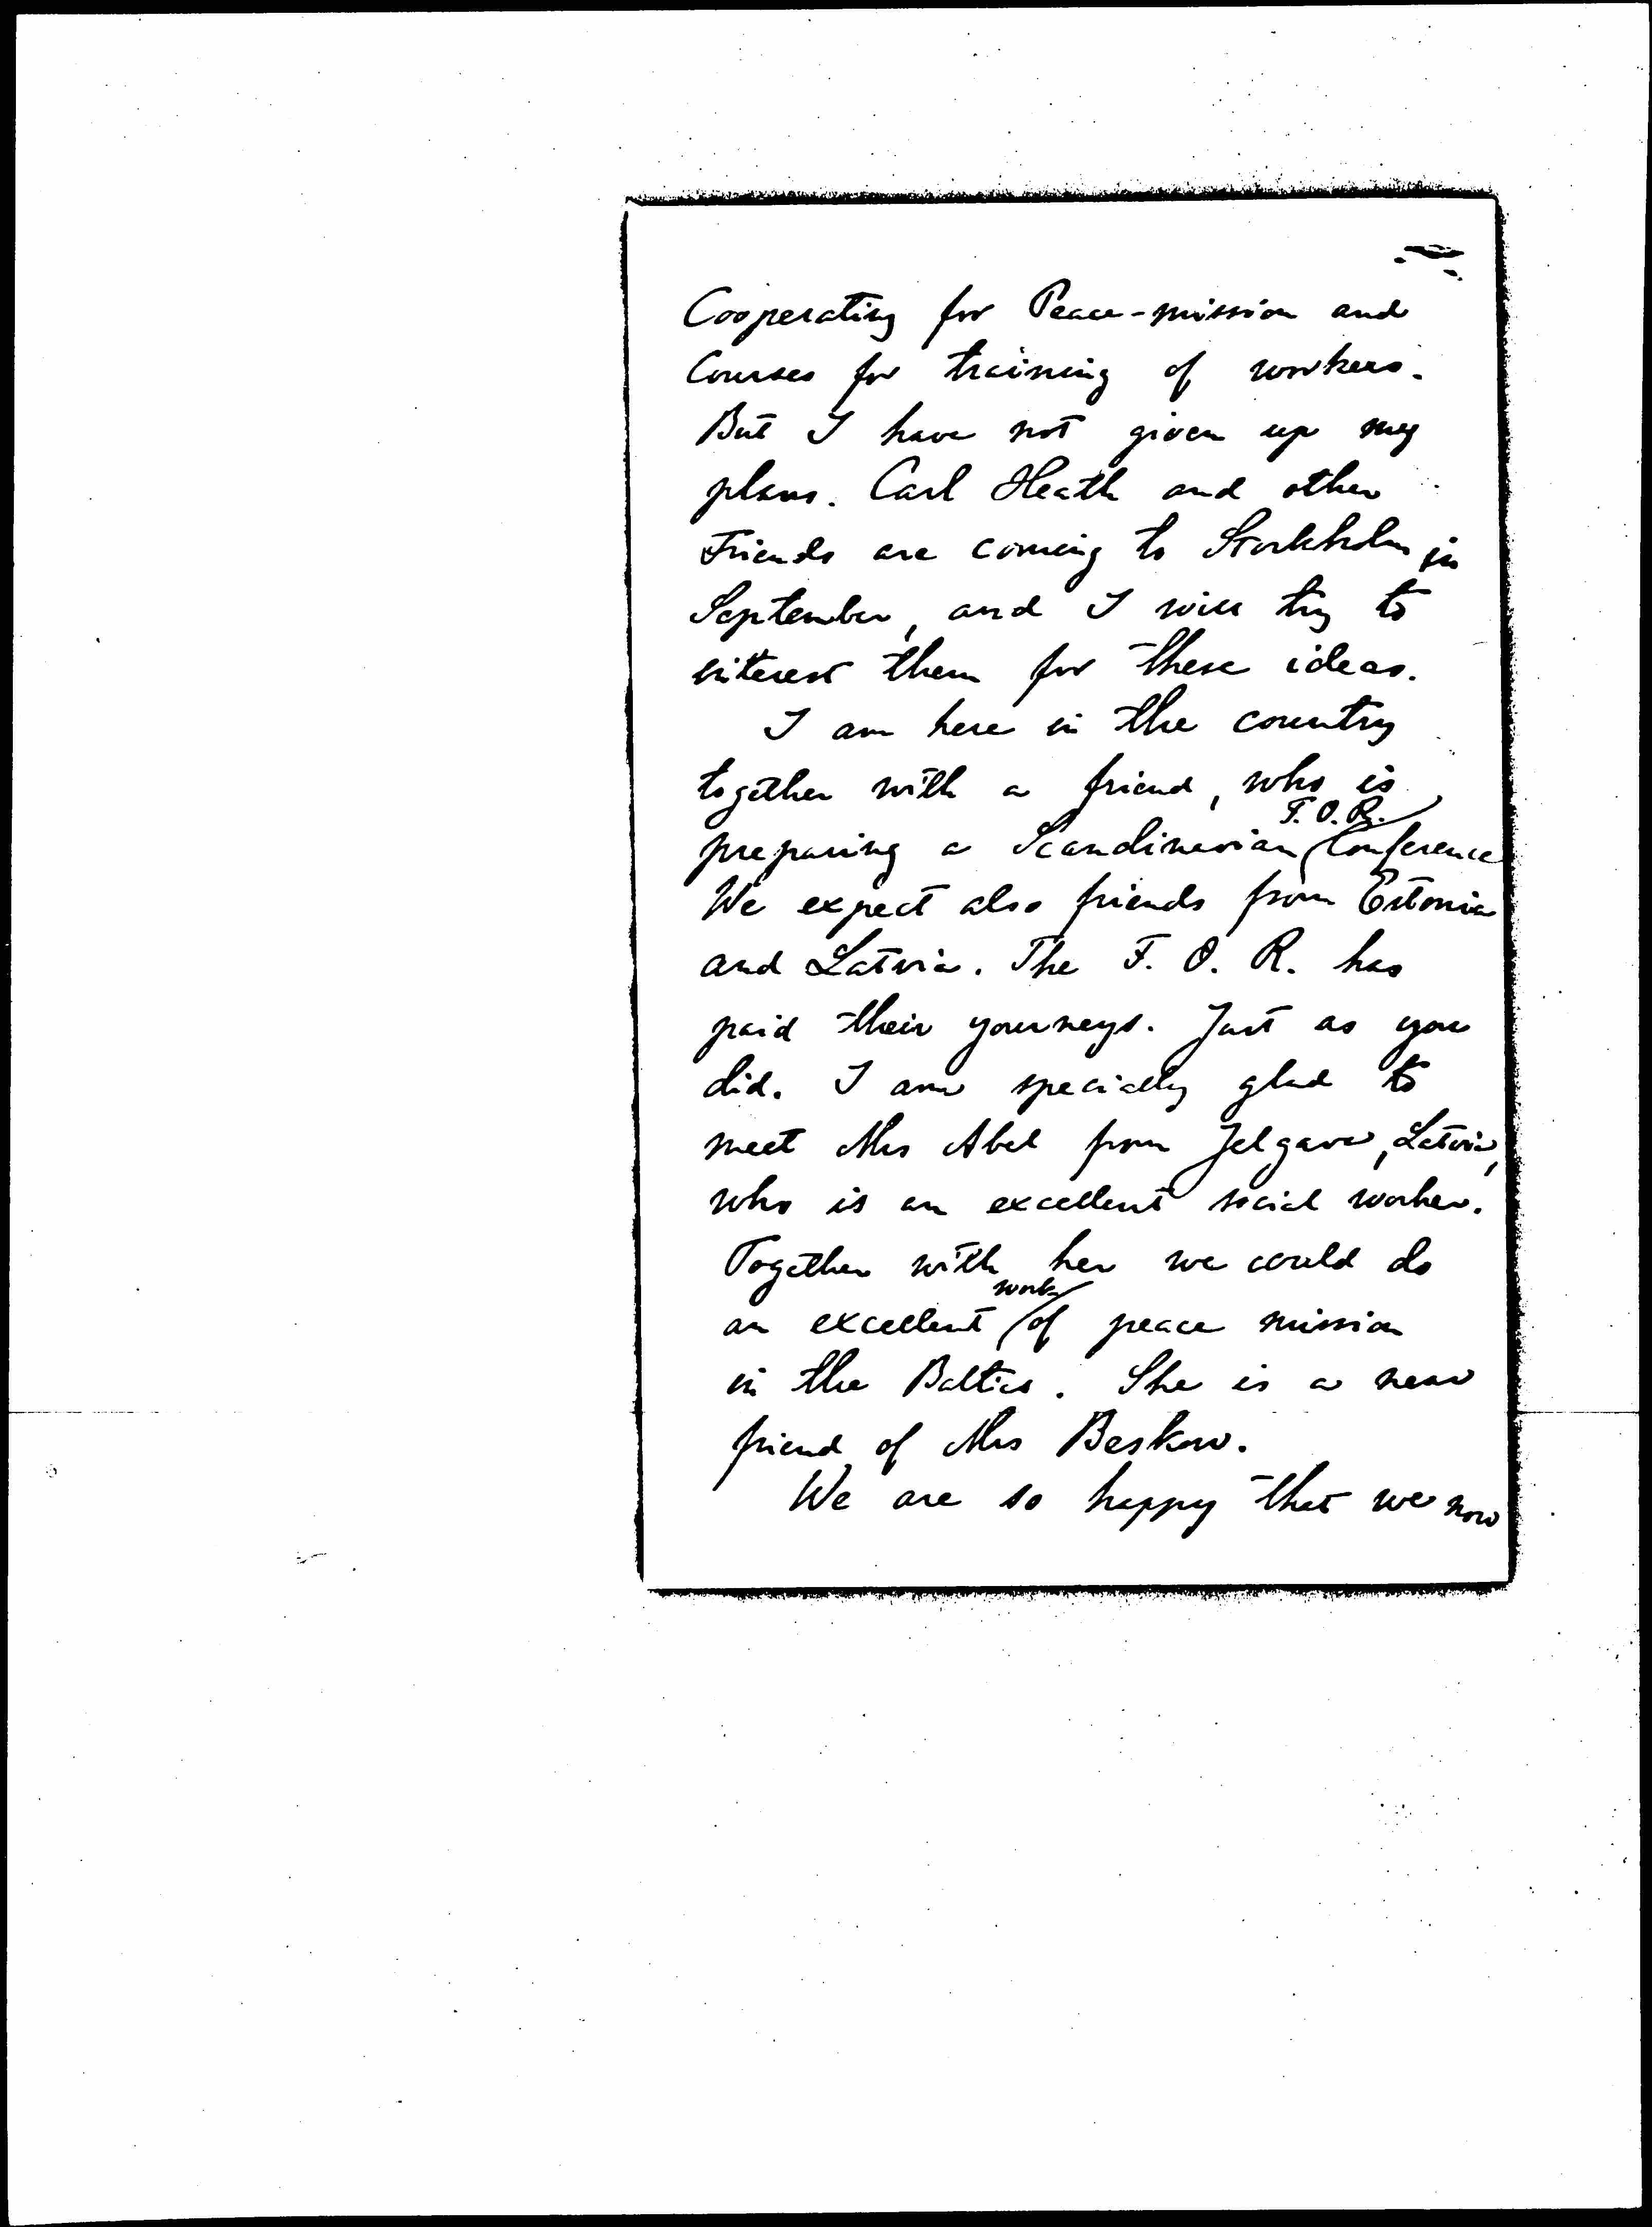 Cooperating for Peace-mission and
Courses for training of workers.
But I have not given up my
plans. Carl Heath and other
Friends are coming to Stockholm in
September, and I will try to
interest them for these ideas.
I am here in the country
together with a friend, who is
preparing a Scandinavian F.O.R. Conference
We expect also friends from Estonia
and Latvia. The F. O. R. has
paid their yourneys. Just as you
did. I am specially glad to
meet Mrs Abel from Jelgava, Latvia,
who is an excellent social worker.
Together with her we could do
an excellent work of peace mission
in the Baltics. She is a near
friend of Mrs Beskow.
We are so happy that we now